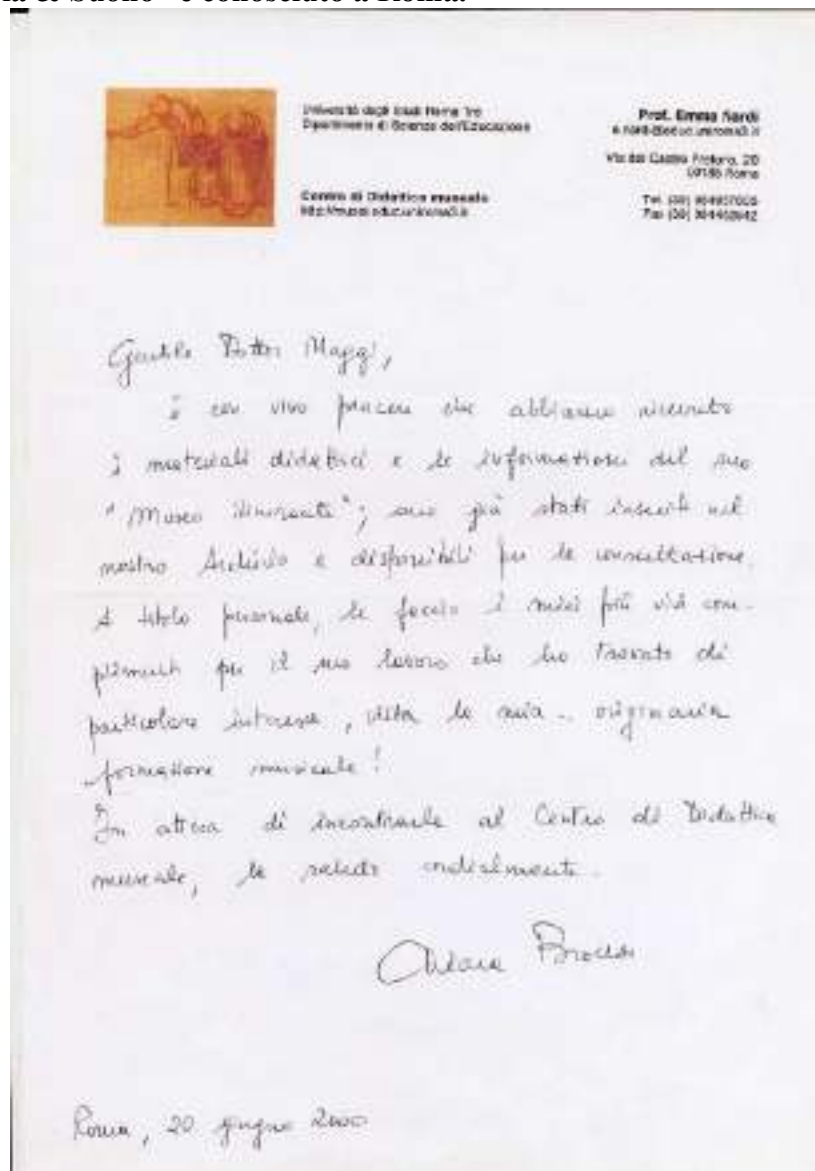 Suono" è conosciuto a Roma.
Università degli Studi Roma Tre
Dipartimento di Scienze dell'Educazione
Centro di Didattica museale
Prof. Emma Nardi
Roma
Tel.
Fax
Gentile Dottor Maggi,
è con vivo piacere che abbiamo ricevuto
i materiali didattici e le informazioni del suo
"Museo itinerante"; sono già stati inseriti nel
nostro Archivio e disponibili per la consultazione.
A titolo personale, le faccio i miei più vivi com-
plimenti per il suo lavoro che ho trovato di
particolare interesse, vista la mia .. originaria
formazione musicale!
In attesa di incontrarla al Centro di Didattica
museale, la saluto cordialmente.
Chiara
Roma, 20 giugno 2000